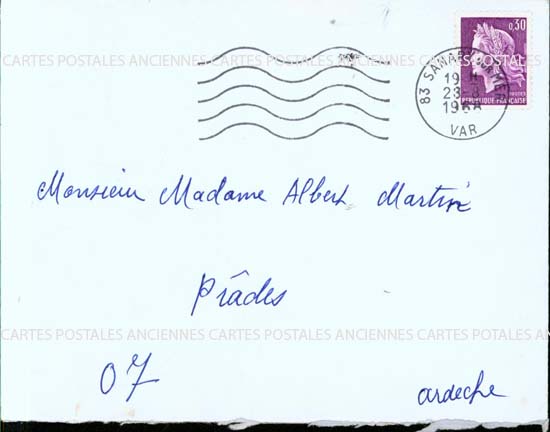 0,30
RÉPUBLIQUE FRANÇAISE
83 SANARY-S-MER
19 H
23-8
VAR
CARTES POSTALES ANCIENNES CARTES POSTALES ANCIENNES CARTES POSTALES ANCIENNES
Monsieur Madame Albert
Prâdes
CARTES POSTALES ANCIENNES CARTES POSTALES ANCIENNES CARTES POTALES ANCIENNES
07
ardeche